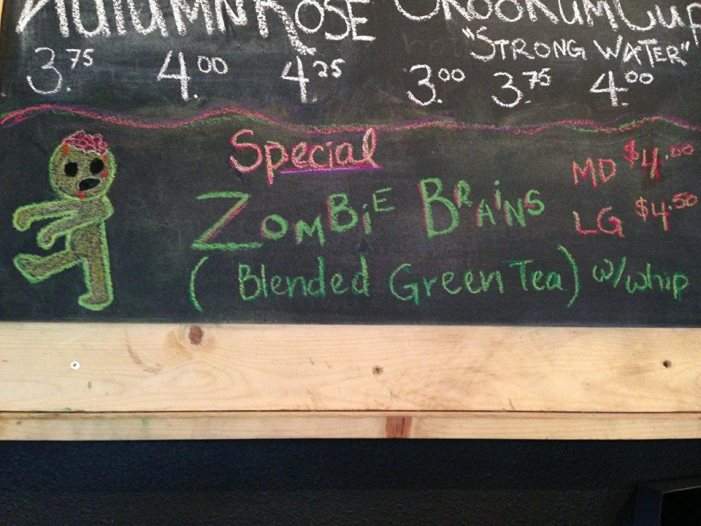 AUTUMN ROSE SKOOKUM CUP
"STRONG WATER"
3.75 4.00 4.25 3.00 3.75 4.00
Special
ZOMBiE BRAiNS MD $4.00
LG $4.50
(Blended Green Tea) w/whip